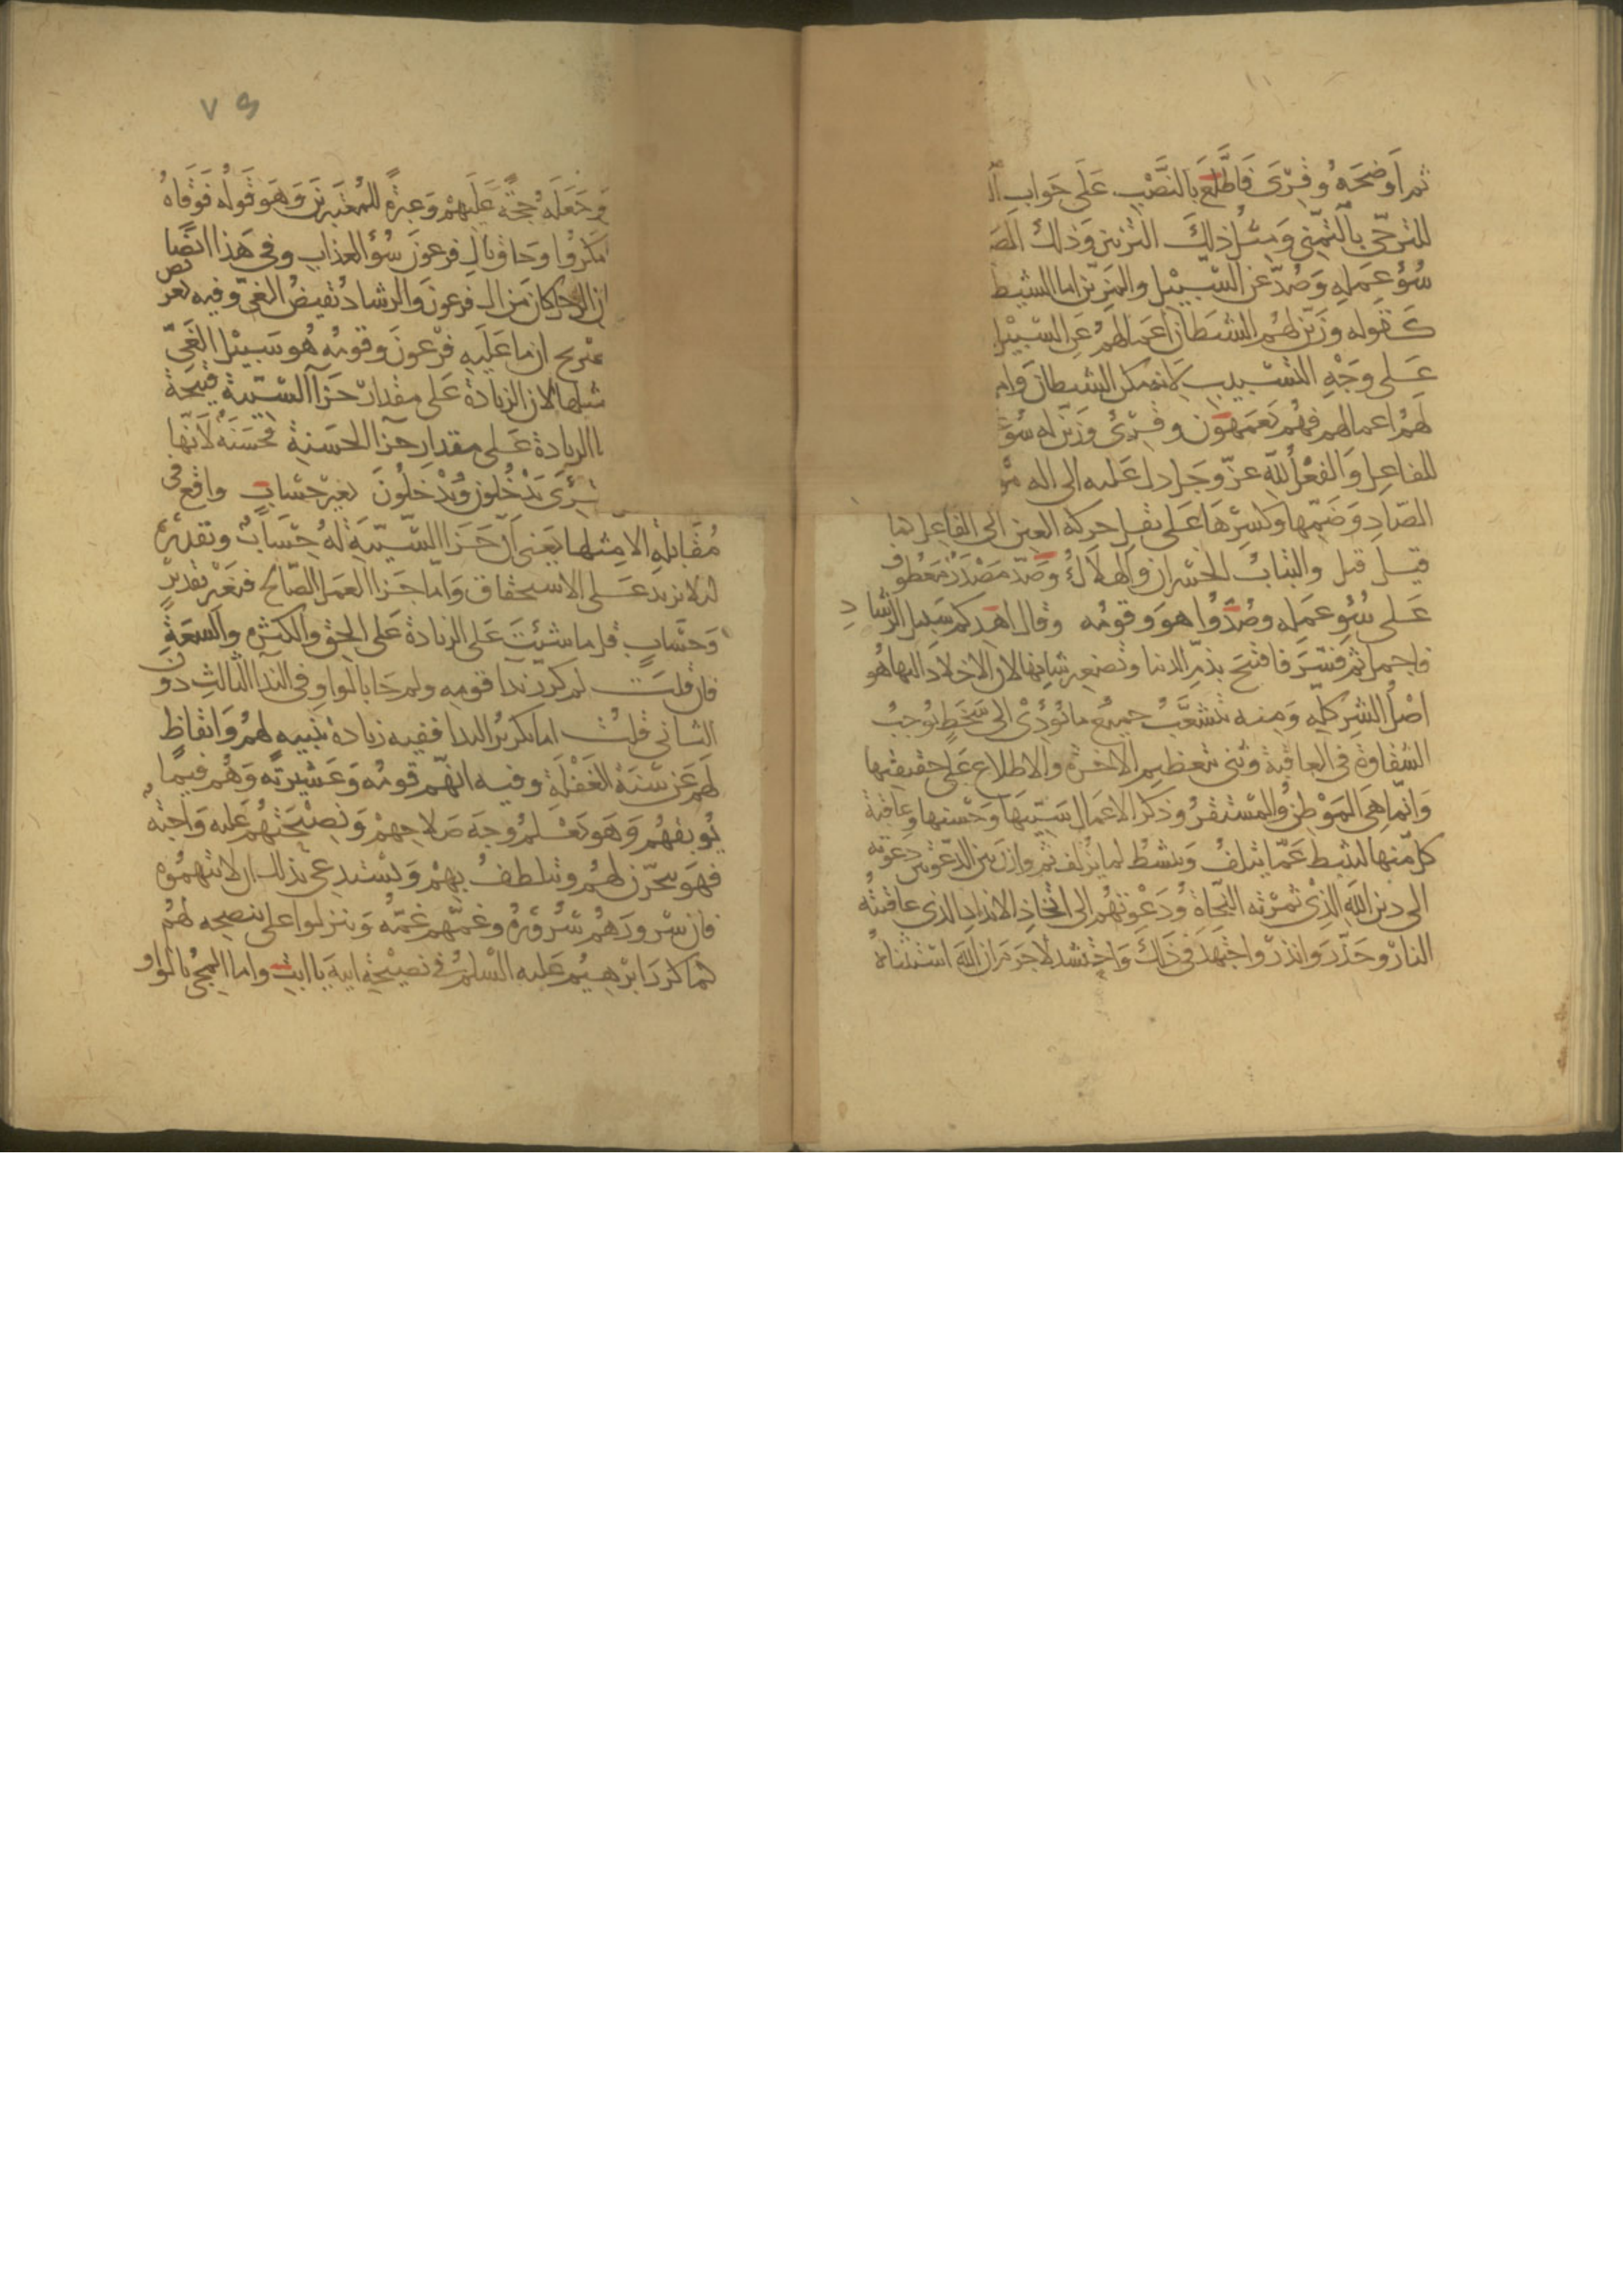 ثم اوضحه وقرئ فاطلع بالنصب على جواب
للترجي بالتمني ومثل ذلك التزيين وذلك
سوء عمله وصد عن السبيل والمزين اما الشيط
كقوله وزين لهم الشيطان اعمالهم عن السبيل
على وجه التسبيب لانه مكن الشيطان وام
لهم اعمالهم فهم يعمهون وقرئ وزين له سو
للفاعل والفعل لله عز وجل دل عليه الى اله م
الصاد وضمها وكسرها على نقل حركة العين الى الفا على كما
قيل قيل والتباب الخسران والهلاك وصد مصدر معطوف
على سوء عمله وصدوا هو وقومه وقال اهدكم سبيل الرشاد
فاجمل ثم فسر فافتتح بذم الدنيا وتصغير شانها لان الاخلاد اليها هو
اصل الشر كله ومنه تتشعب جميع ما يؤدي الى سخط يوجب
الشقاوة في العاقبة وثنى تعظيم الاخرة والاطلاع على حقيقتها
وانها هي الموطن والمستقر وذكر الاعمال سيئها وحسنها وعاقبة
كل منها ليثبط عما يتلف وينشط لما يزلف ثم وازن بين الدعوتين دعوته
الى دين الله الذي ثمرته النجاة ودعوتهم الى اتخاذ الانداد الذي عاقبته
النار وحذر وانذر واجتهد في ذلك واحتشد لا جرم ان الله استثناه
٧٥
وجعله حجة عليهم وعبرة للمعتبرين وهو قوله فوقاه
مكروا وحاق بال فرعون سوء العذاب وفي هذا ايضا
ان الرجل كان من ال فرعون والرشاد نقيض الغي وفيه تعر يض
صريح ان ما عليه فرعون وقومه هو سبيل الغي
مثلها لان الزيادة على مقدار جزا السيئة قبيحة
الزيادة على مقدار جزا الحسنة فحسنة لانها
قرئ يدخلون ويدخلون بغير حساب واقع في
مقابلة الا مثلها يعني ان جزا السيئة له حساب وتقدير
لئلا تزيد على الاستحقاق واما جزا العمل الصالح فبغير تقدير
وحساب قل ما شئت على الزيادة على الحق والكثرة والسعة
فان قلت لم كرر ندا قومه ولم جا بالواو في الندا الثالث دون
الثاني قلت اما تكرير الندا ففيه زيادة تنبيه لهم وايقاظ
لهم عن سنة الغفلة وفيه انهم قومه وعشيرته وهم فيما
يوبقهم وهو يعلم وجه صلاحهم ونصيحتهم عليه واجبة
فهو يتحزن لهم ويتلطف بهم ويستدعي بذلك ان لا يتهموه
فان سرورهم سروره وغمهم غمه وينزلوا على تنصيحه لهم
كما كرر ابرهيم عليه السلم في نصيحة ابيه يا ابت واما المجئ بالواو